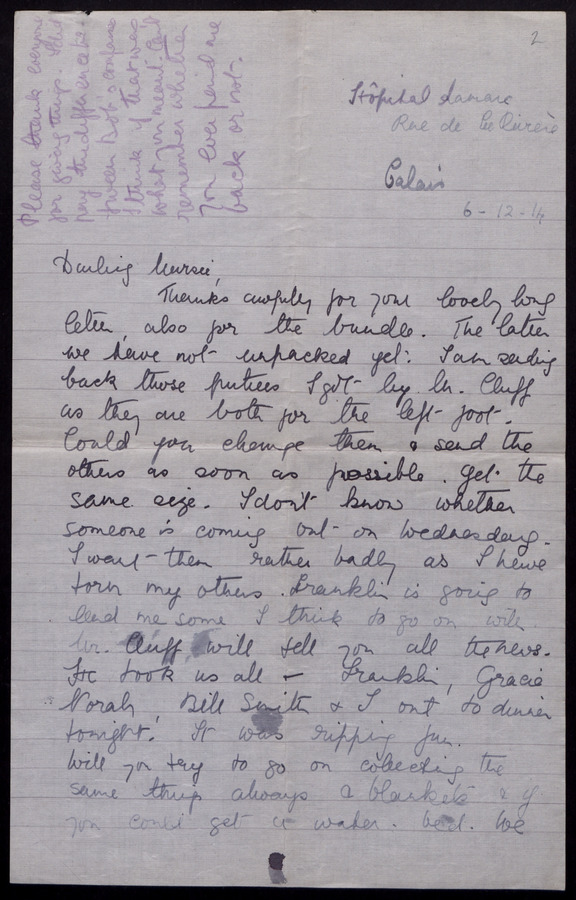 2
Hôpital Lamarck
Rue de la Rivière
Calais
6-12-14
Darling Mersie,
Thanks awfully for your lovely long
letter, also for the bundle. The latter
we have not unpacked yet. I am sending
back those puttees I got by Mr. Cluff
as they are both for the left foot.
Could you change them & send the
others as soon as possible. Get the
same size. I don't know whether
someone is coming out on Wednesday.
I want them rather badly as I have
torn my others. Franklin is going to
lend me some I think to go on with.
Mr. Cluff will tell you all the news.
He took us all - Franklin, Gracie
Norah, Bill Smith & I out to dinner
tonight! It was ripping fun.
Will you try to go on collecting the
same things always & blankets & if
you could get a water-bed. We
Please thank everyone
for giving things. I'll
pay the difference be-
tween Bob's
I think if that was
what you meant. Can't
remember whether
you ever paid me
back or not.